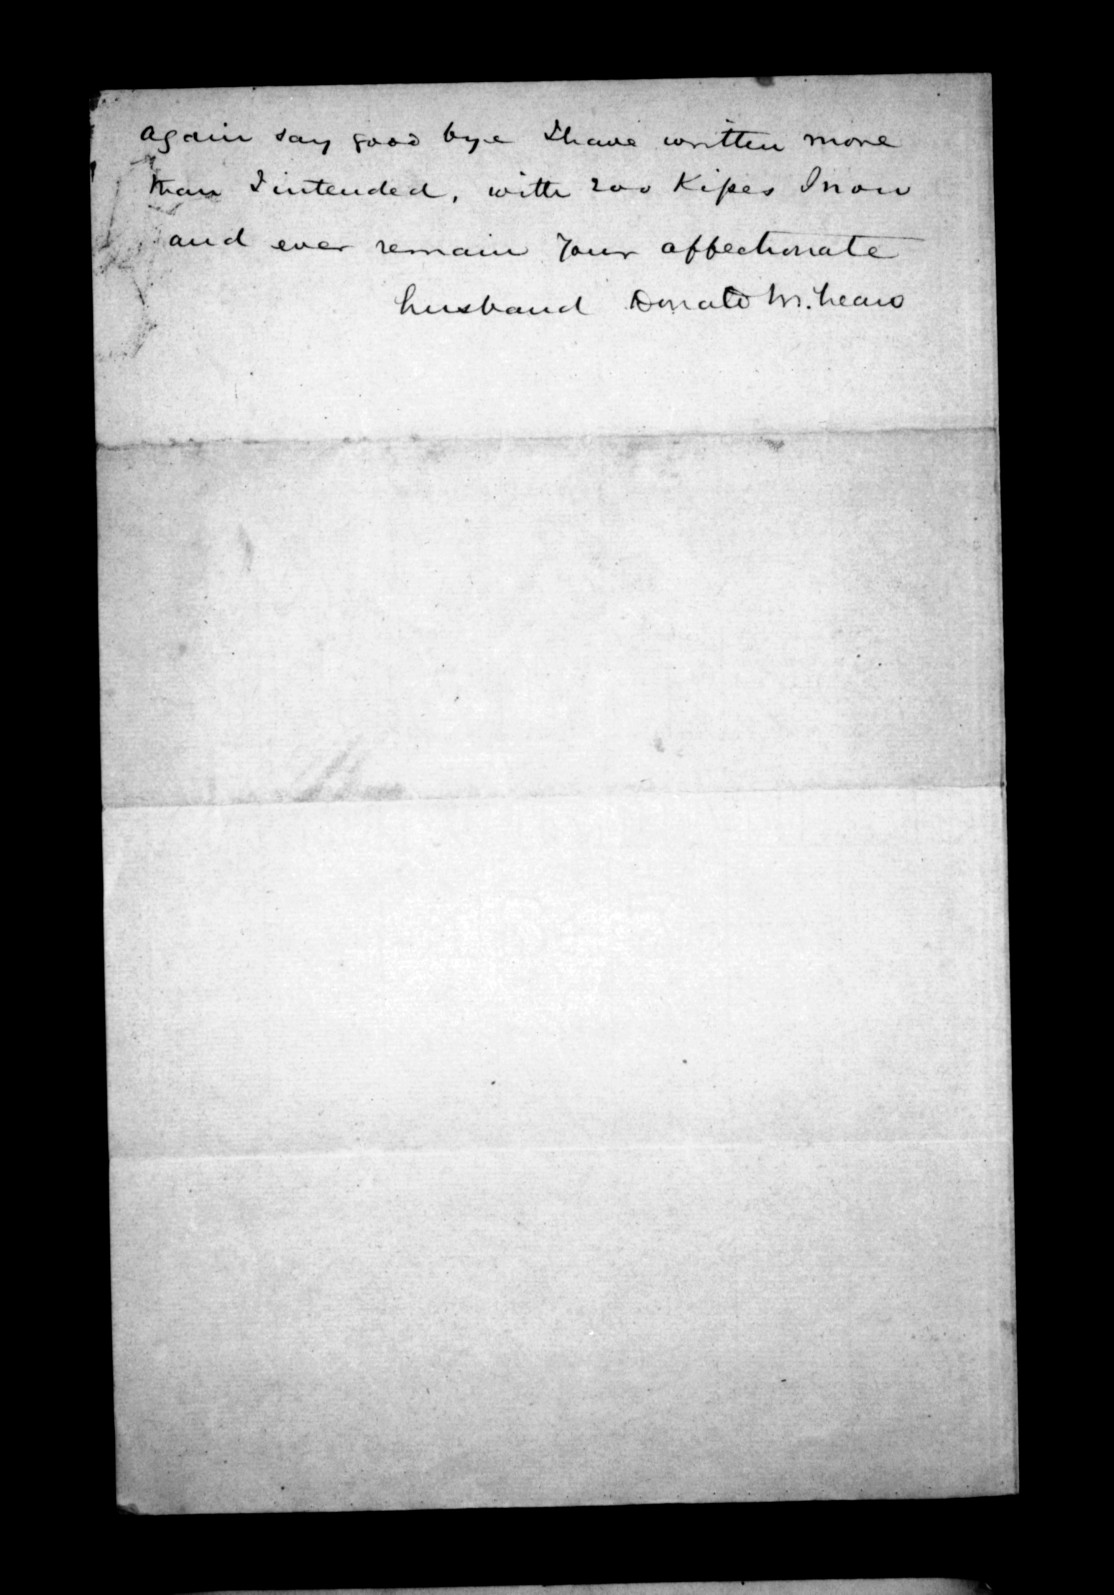 again say good bye I have written more
than I intended, with 200 Kipes I now
and ever remain your affectionate
husband Donald McLean